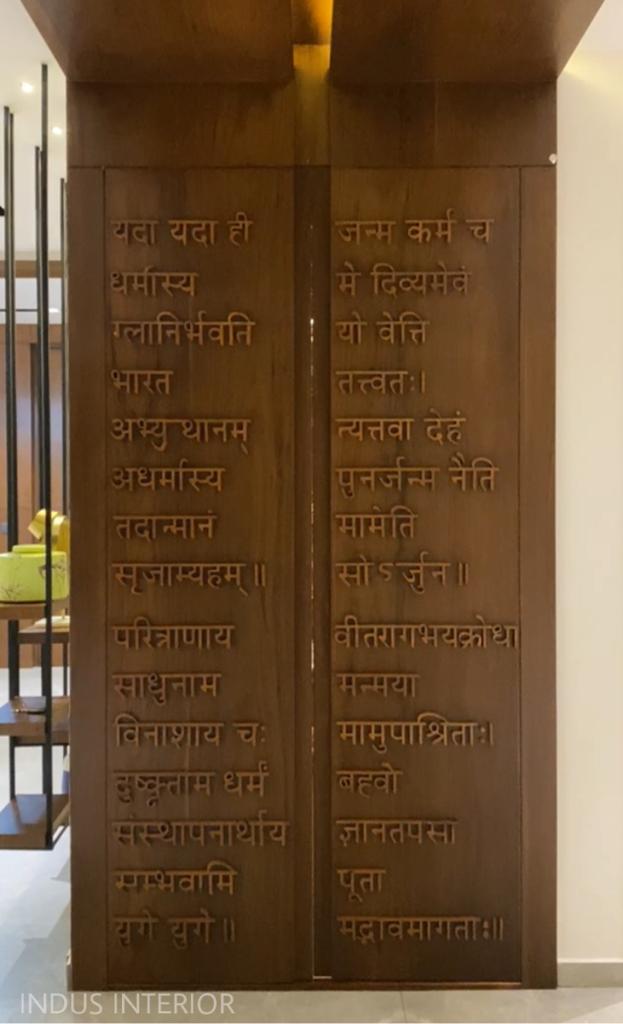 यदा यदा ही
धर्मास्य
ग्लानिर्भवति
भारत
अभ्युत्थानम्
अधर्मास्य
तदान्मानं
सृजाम्यहम्॥
परित्राणाय
साधुनाम
विनाशाय चः
दुष्कृताम धर्मं
संस्थापनार्थाय
सम्भवामि
युगे युगे॥
जन्म कर्म च
मे दिव्यमेवं
यो वेत्ति
तत्त्वतः।
त्यत्तवा देहं
पुनर्जन्म नैति
मामेति
सोऽर्जुन॥
वीतरागभयक्रोधा
मन्मया
मामुपाश्रिताः।
बहवो
ज्ञानतपसा
पूता
मद्भावमागताः॥
INDUS INTERIOR